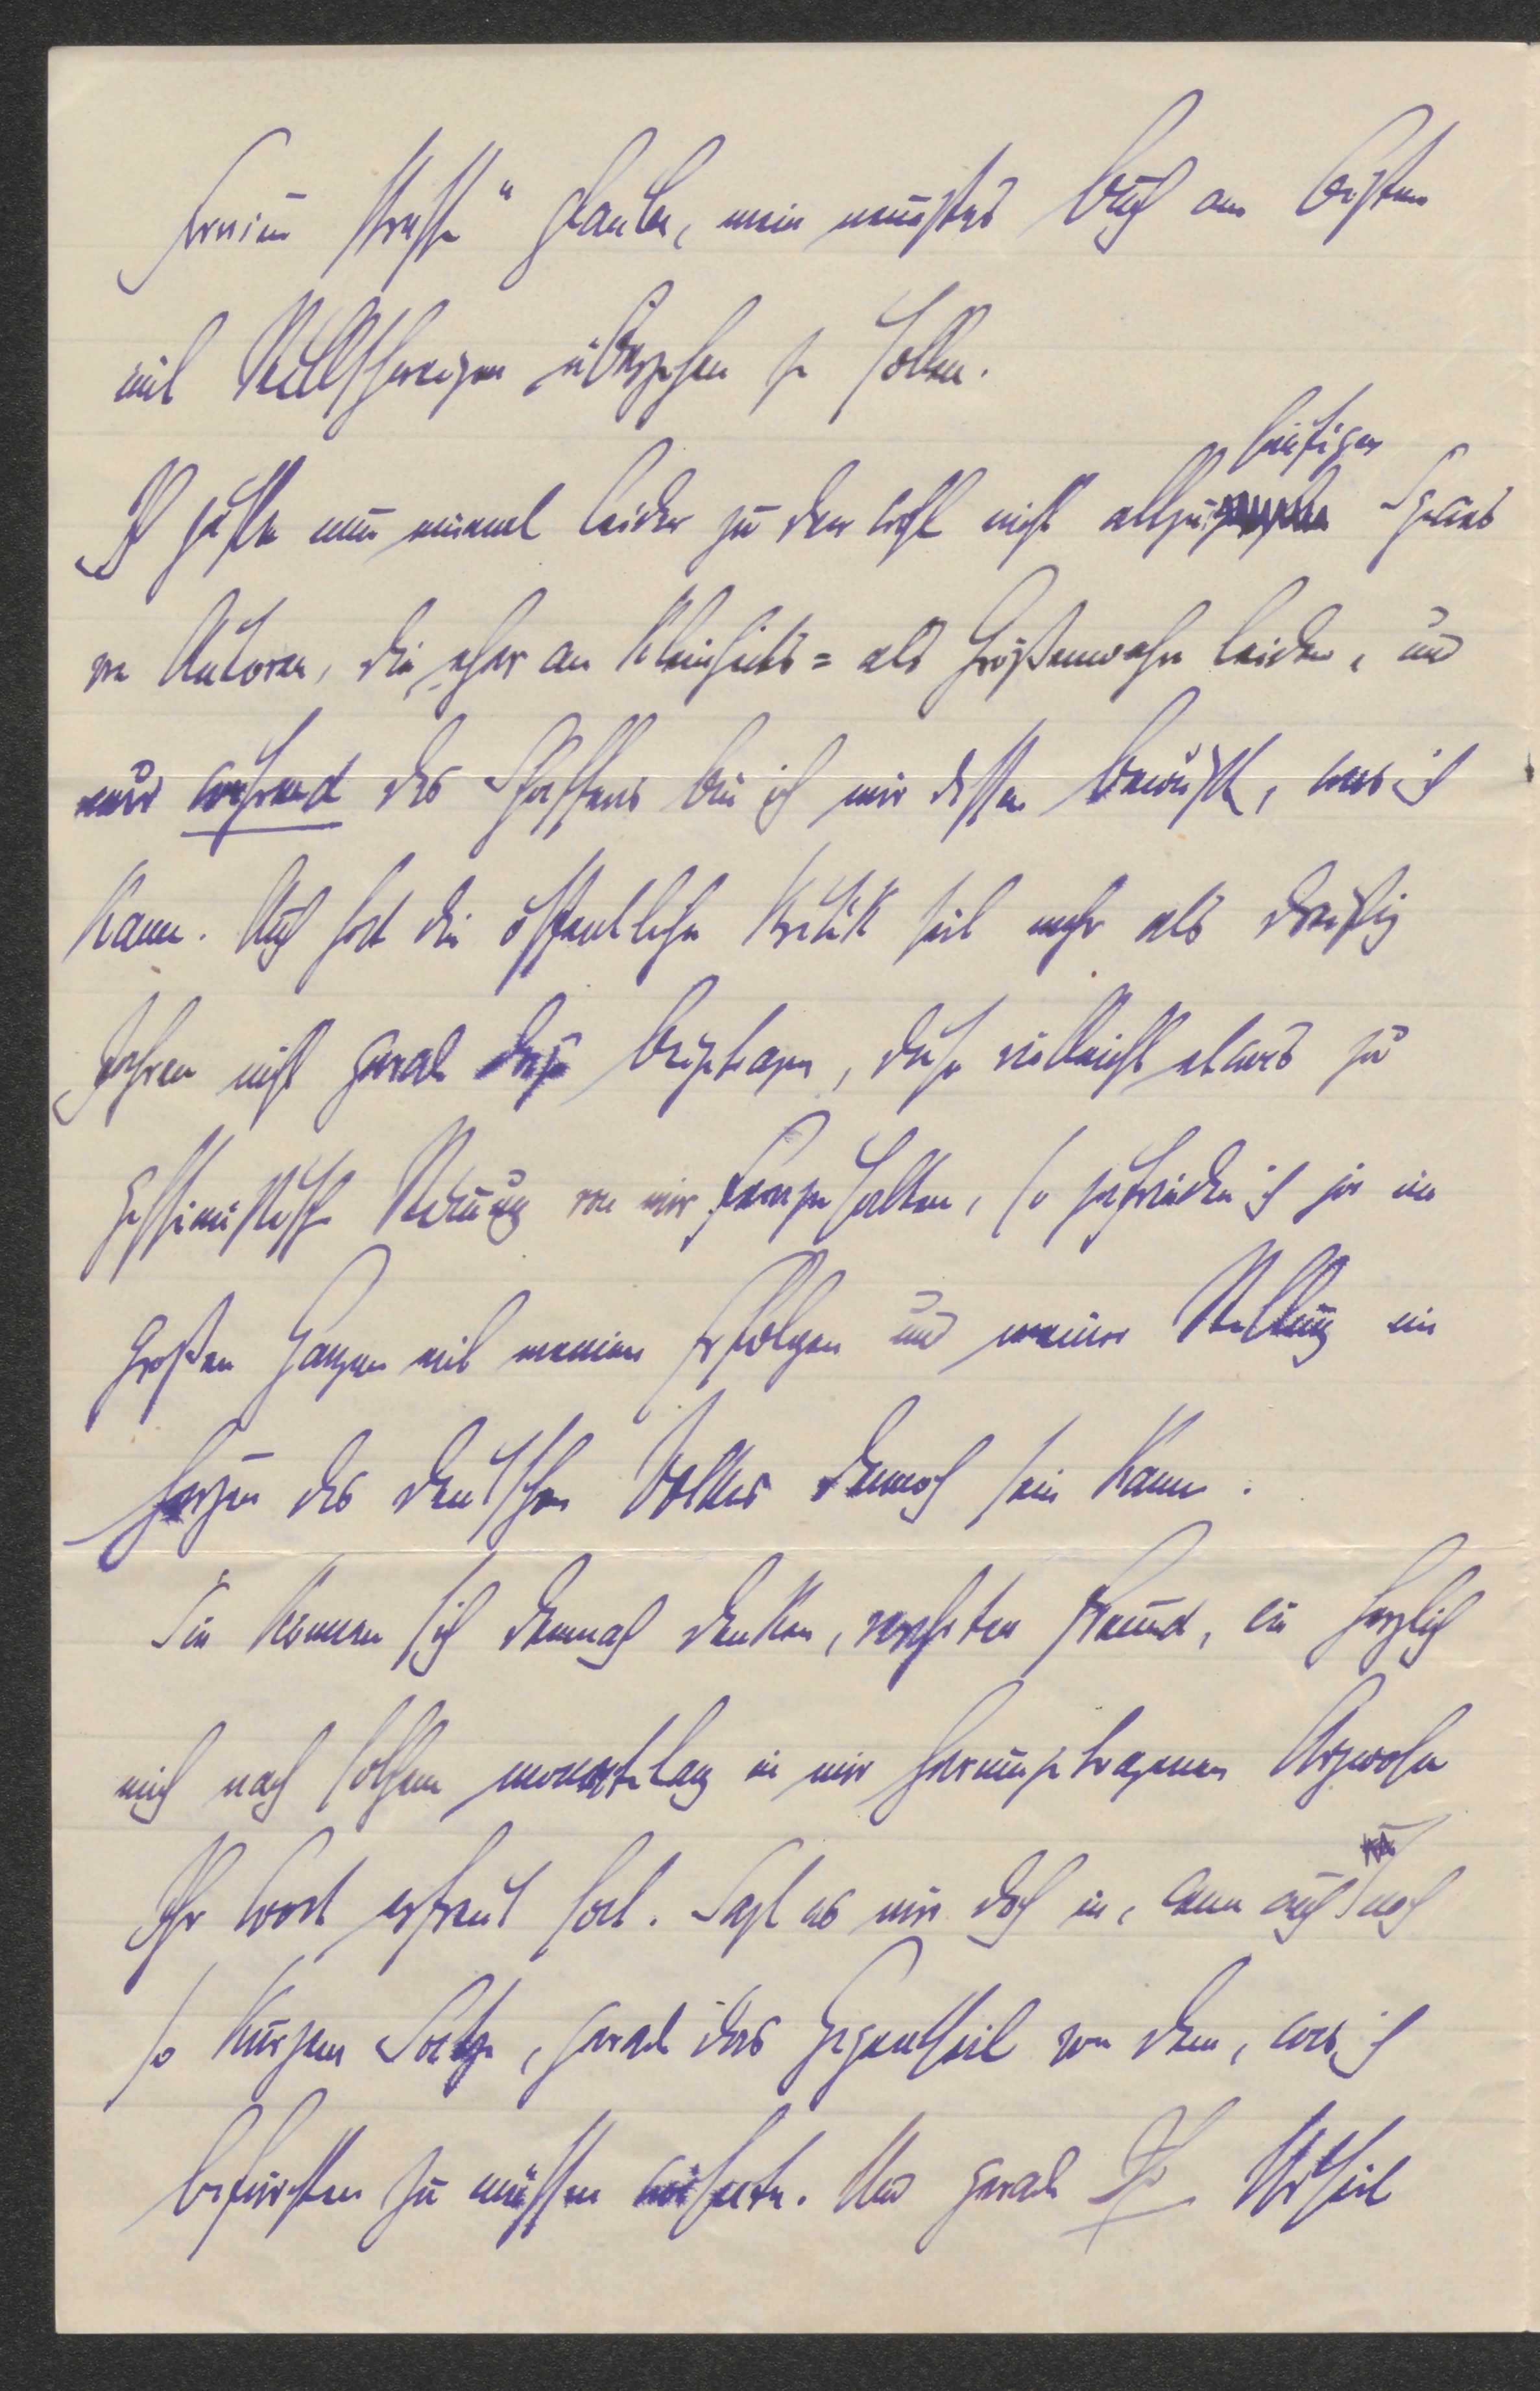 freien Presse" glaube, mein neuestes Buch am besten
mit Stillschweigen übergehen zu sollen.
Ich gehöre nun einmal leider zu der wohl nicht allzu häufigen Species
von Autoren, die eher an Kleinheits= als Größenwahn leiden, und
nur während des Schaffens bin ich mir dessen bewußt, was ich
kann. Auch hat die öffentliche Kritik seit mehr als dreißig
Jahren nicht gerade dazu beigetragen, diese vielleicht etwas zu
pessimistische Meinung von mir fernzuhalten, so zufrieden ich ja im
Großen Ganzen mit meinen Erfolgen und meiner Stellung im
Herzen des deutschen Volkes dennoch sein kann.
Sie können sich demnach denken, verehrter Freund, wie herzlich
mich nach solchem monatelang in mir herumgetragenen Argwohn
Ihr Wort erfreut hat. Sagt es mir doch in, wenn auch noch
so kurzem Satze, gerade das Gegentheil von dem, was ich
befürchten zu müssen wähnte. Und gerade Ihr Urtheil